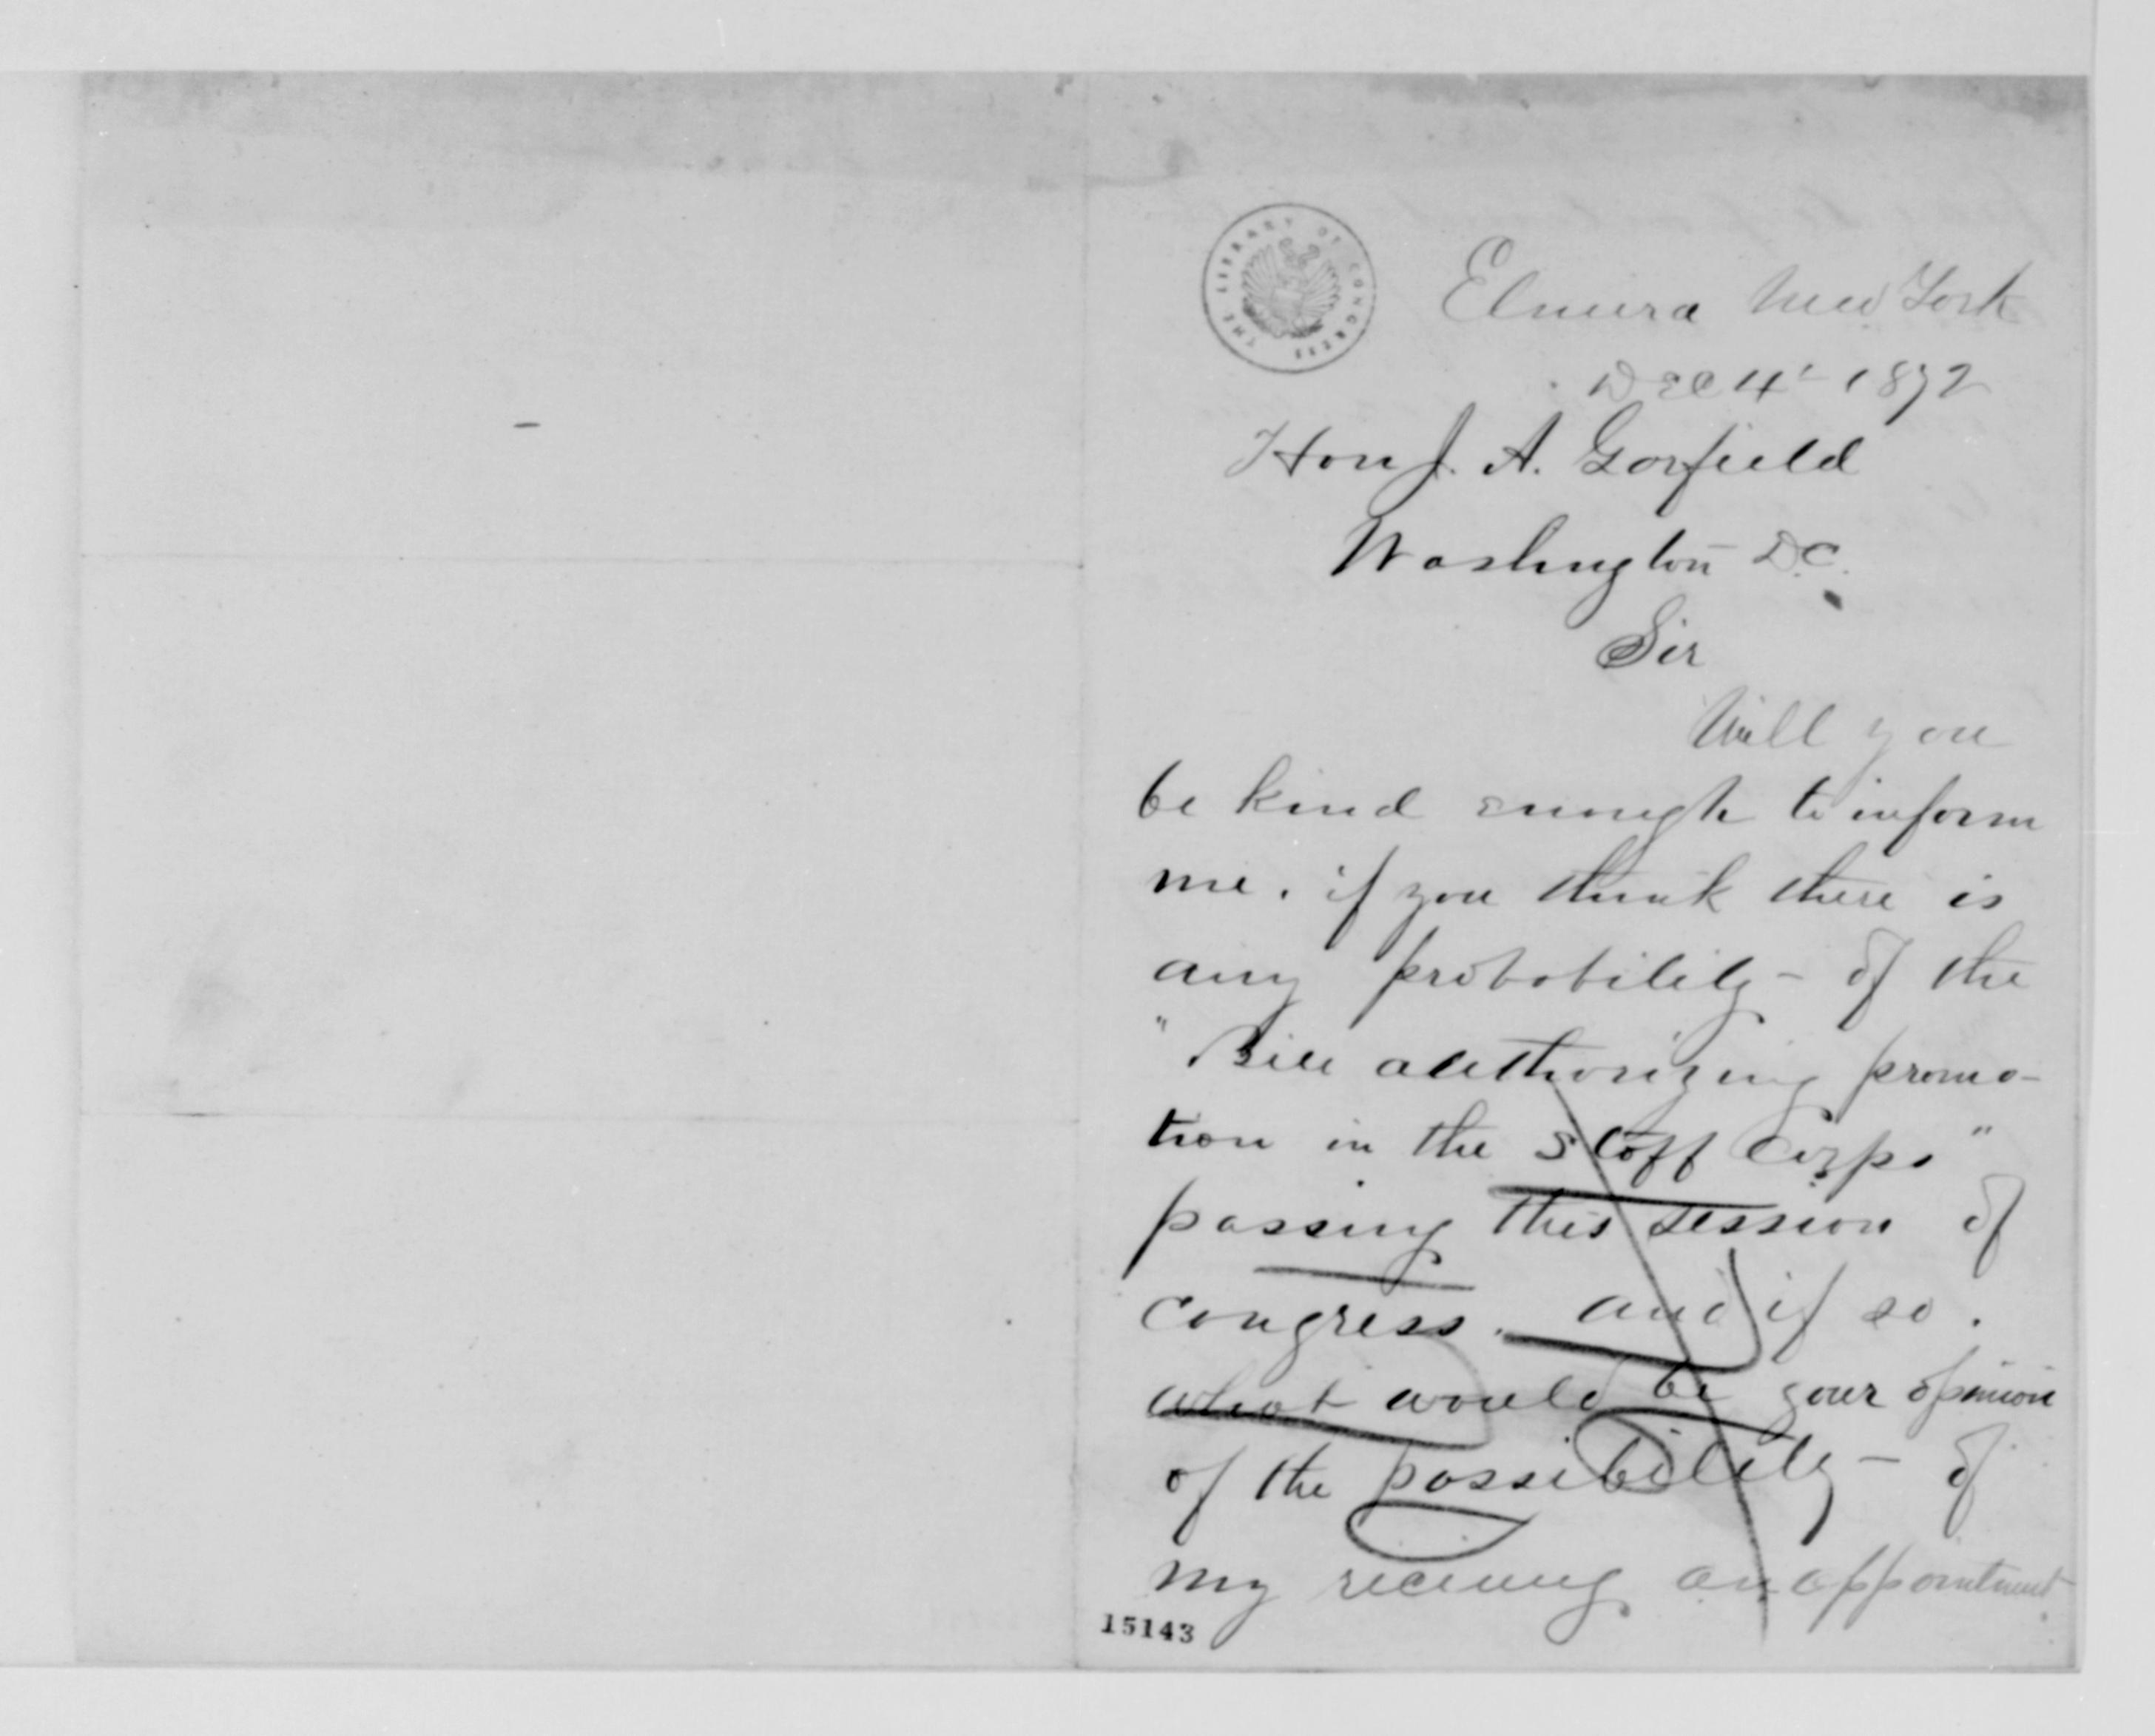 THE LIBRARY OF CONGRESS
Elmira New York
Dec 4 1872
Hon J. A. Garfield
Washington D.C.
Sir
Will you
be kind enough to inform
me. if you think there is
any probability - of the
"Bill authorizing promo-
tion in the Staff Corps"
passing this session of
Congress. and if so.
what would be your opinion
of the possibility - of
my receiving an appointment
15143